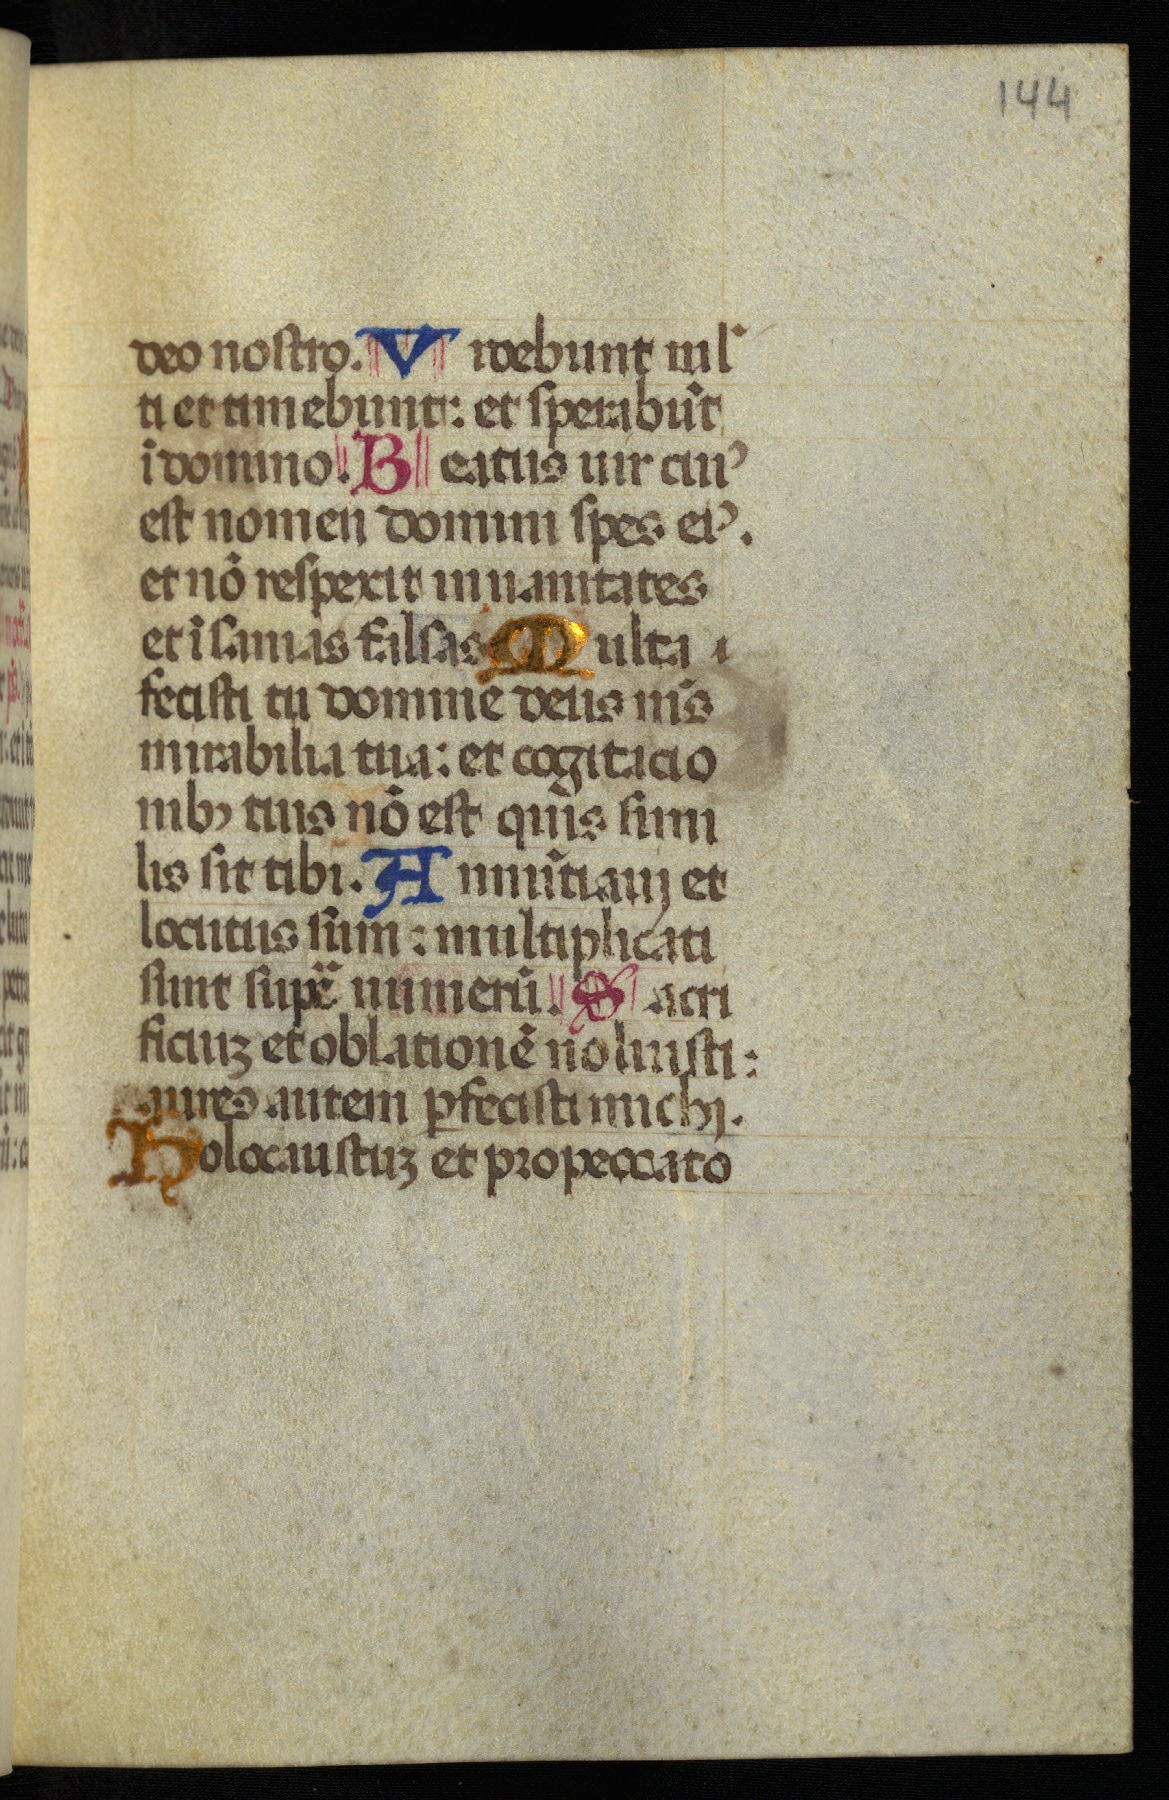 144
deo nostro. Videbunt ml
ti et timebunt: et sperabūt
ī domino. Beatus uir cuiꝰ
est nomen domini spes eiꝰ.
et nō respexit in uanitates
et īsanias falsas Multa
fecisti tu domine deus ms̄
mirabilia tua: et cogitacio
nibꝫ tuis nō est quis simi
lis sit tibi. Annūtiauj et
locutus sum: multiplicati
sunt sup numerū. Sacri
ficiuꝫ et oblationē noluisti:
aures autem ꝑfecisti michj.
Holocaustuꝫ et pro peccato